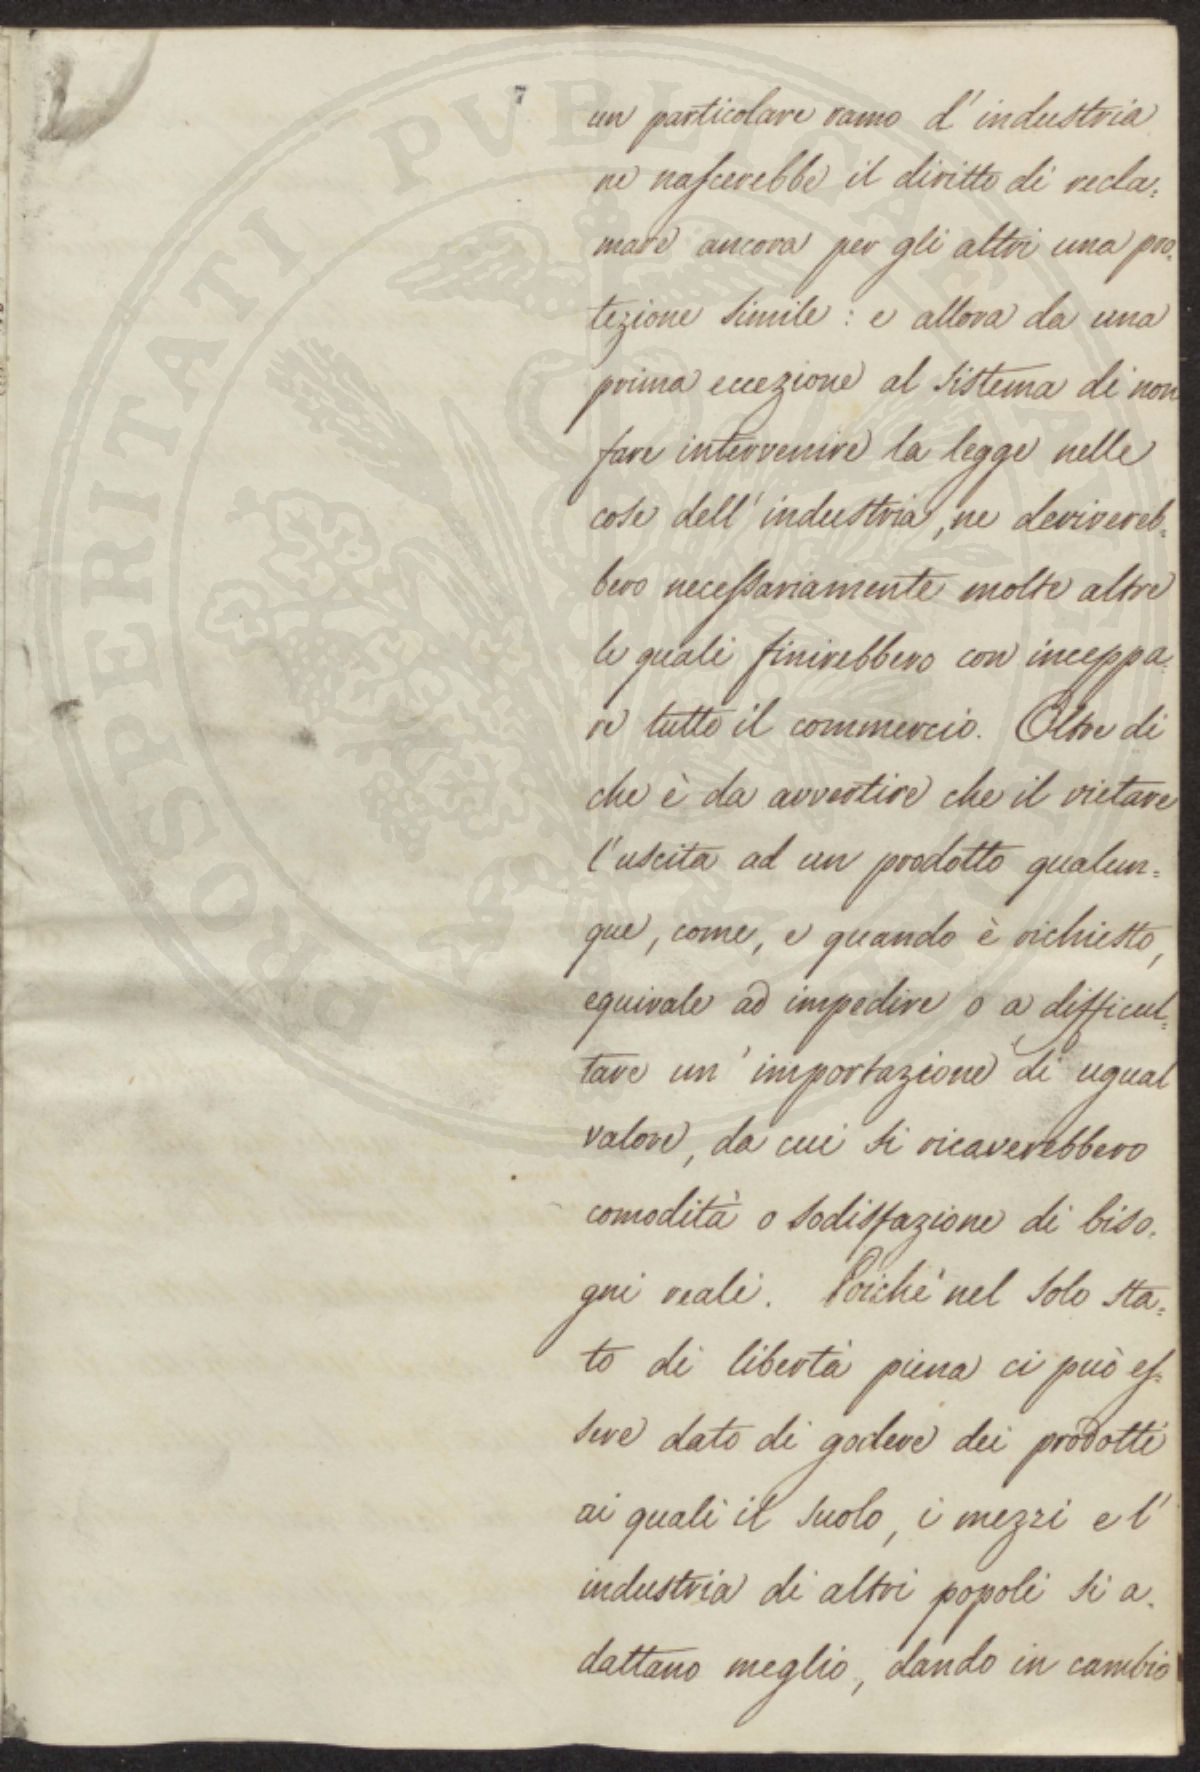 7
un particolare ramo d'industria
ne nascerebbe il diritto di recla:
mare ancora per gli altri una pro:
tezione simile: e allora da una
prima eccezione al sistema di non
fare intervenire la legge nelle
cose dell'industria, ne derivereb:
bero necessariamente molte altre
le quali finirebbero con inceppa:
re tutto il commercio. Oltre di
che è da avvertire che il vietare
l'uscita ad un prodotto qualun:
que, come, e quando è richiesto,
equivale ad impedire o a difficul:
tare un'importazione di ugual
valore, da cui si ricaverebbero
comodità o sodisfazione di biso:
gni reali. Poiché nel solo sta:
to di libertà piena ci può es:
sere dato di godere dei prodotti
ai quali il suolo, i mezzi e l'
industria di altri popoli si a:
dattano meglio, dando in cambio
PROSPERITATI PVBLICAE AVGENDAE